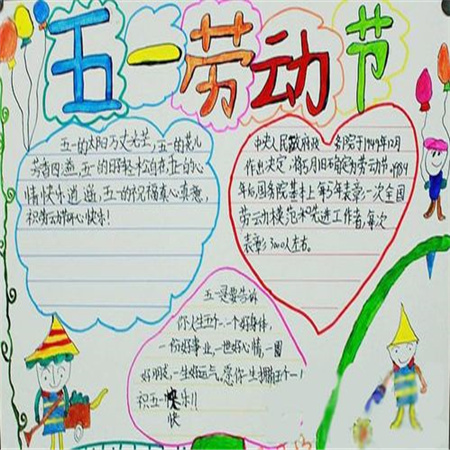 五一劳动节
五一的太阳万丈光芒,五一的花儿
芳香四溢,五一的日子轻松自在,五一的心
情快乐逍遥,五一的祝福真心真意,
祝劳动节开心快乐!
中央人民政府政务院于1949年12月
作出决定,将5月1日确定为劳动节。1989
年后国务院基本上每5年表彰一次全国
劳动模范和先进工作者,每次
表彰3000人左右。
五一是要告诉
你人生五个一:一个好身体,
一份好事业,一世好心情,一困
好朋友,一生好运气。愿你一生拥五个一!
祝五一快乐!
快